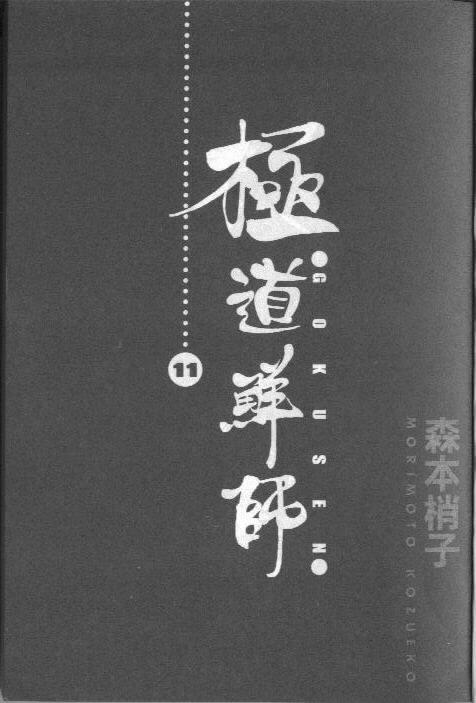 極道鮮師
●GOKUSEN●
11
森本梢子
MORIMOTO KOZUEKO